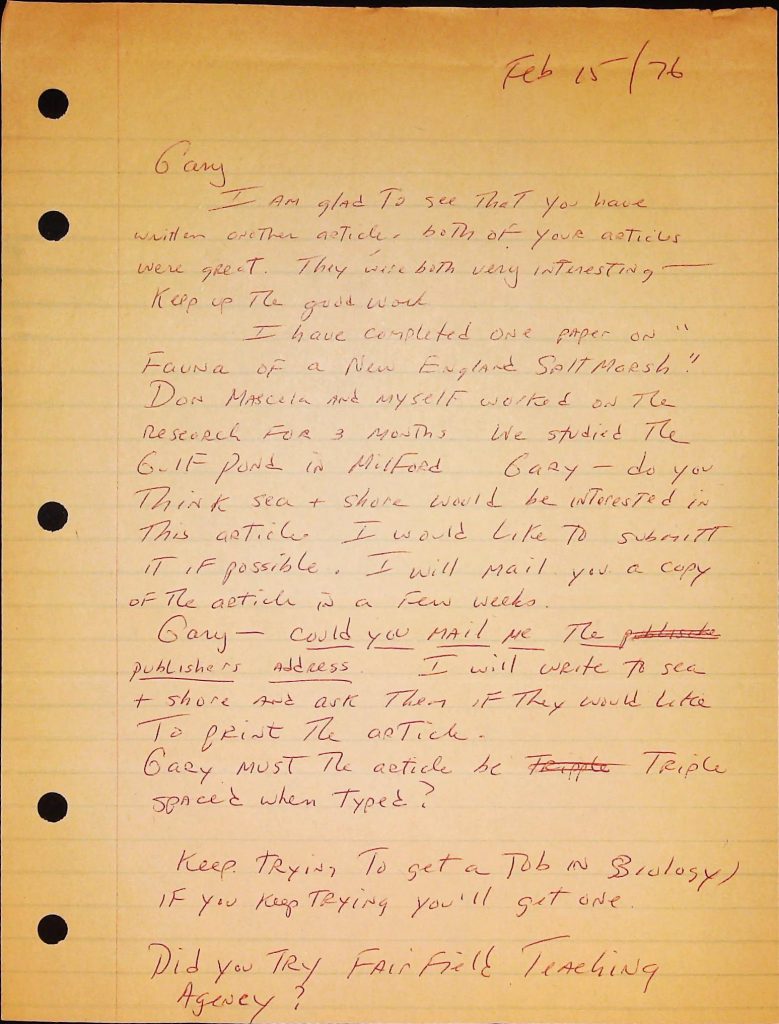 Feb 15/76
Gary
I Am glad To see That you have
written another article. both of your articles
were great. They were both very interesting —
Keep up The good work
I have completed one paper on "
Fauna of a New England Salt Marsh"
Don Mascola and myself worked on The
research For 3 months We studied The
Gulf Pond in Milford Gary — do you
Think sea + shore would be interested in
This article. I would like To submitt
it if possible. I will mail you a copy
of The article in a few weeks.
Gary — could you mail me The publishe
publishers address. I will write To sea
+ shore and ask Them if They would like
To print The article.
Gary must The article be Tripple Triple
spaced when Typed?
Keep Trying To get a Job in Biology,
if you keep Trying you'll get one.
Did you Try Fairfield Teaching
Agency?